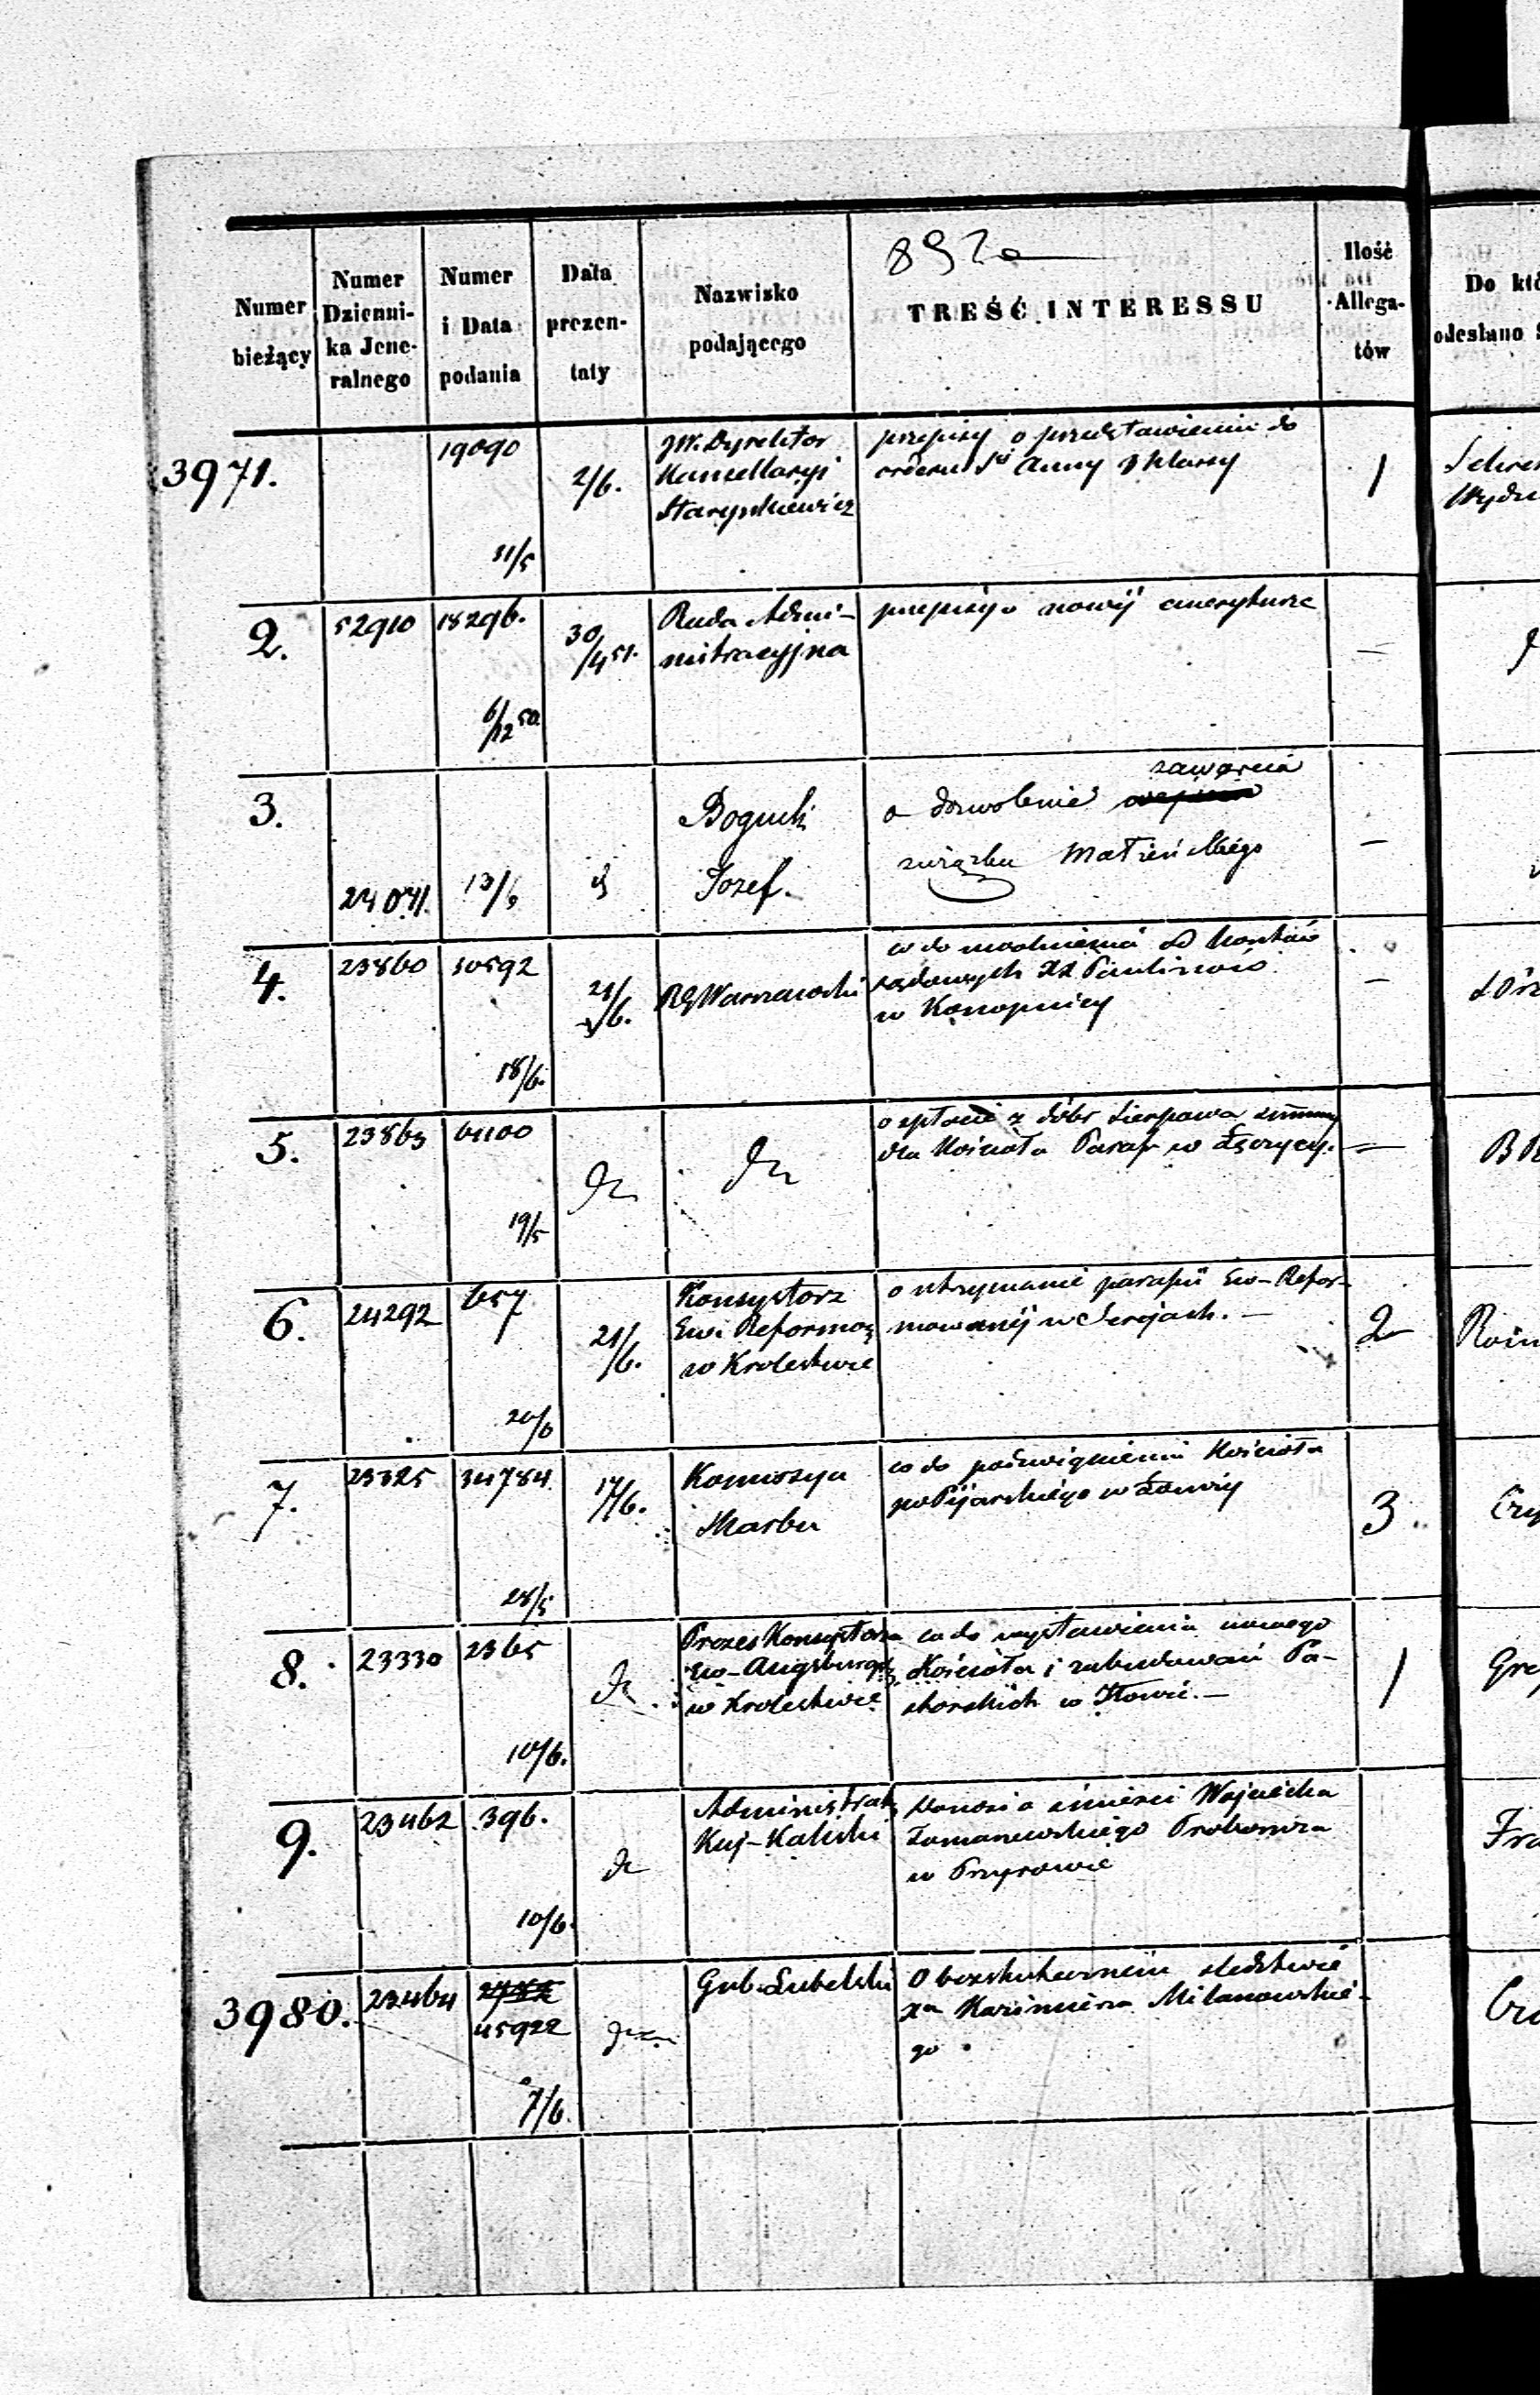 892
Numer bieżący
Numer Dzienni-ka Jene-ralnego
Numer i Data podania
Data prezen-taty
Nazwisko podającego
TREŚĆ INTERESSU
Ilość Allega-tów
Do któ
odesłano
3971.
19090
31/5
2/6.
JW. Dyrektor
Kancellaryi
Starynkiewicz
przepisy o przedstawieniu do
orderu Stej Anny 3 klassy
1
2.
52910
18296.
6/12 50
30/4 51.
Rada Admi-
nistracyjna
przepisy o nowej emeryturze
3.
24041.
13/6
Bogucki
Jozef.
zawarcia
o dozwolenie
związku Małżeńskiego
4.
23860
30592
18/6.
21/6.
RG Warszawski
co do uwolnienia od kosztów
sądowych XX Paulinów
w Konopnicy
5.
23863
61100
19/5
dto
dto
o spłacie z dóbr Sierpowa summy
dla Kościoła Paraf w Łęczycy.
6.
24292
657
20/6
21/6.
Konsystorz
Ew. Reformo
w Krolestwie
o utrzymanie parafii Ew-Refor-
mowanej w Serejach.
2
7.
23325
34784
28/5
17/6.
Komissya
Skarbu
co do poświęcenia Kościoła
po Pijarskiego w Łowiczu
3
8.
23330
2365
10/6.
dto
Prezes Konsystorza
Ew-Augsburg
w Krolestwie
co do wystawienia nowego
Kościoła i zabudowań Pa-
storskich w Iłowie.
1
9.
23462
396.
10/6.
dto
Administrator
Kuj-Kaliski
donosi o śmierci Wojciecha
Tomanewskiego Proboszcza
w Przyrowie
3980.
23464
45922
7/6.
dto
Gub. Lubelski
O bezskutecznem śledztwie
Xa Kazimierza Milanowskie-
go